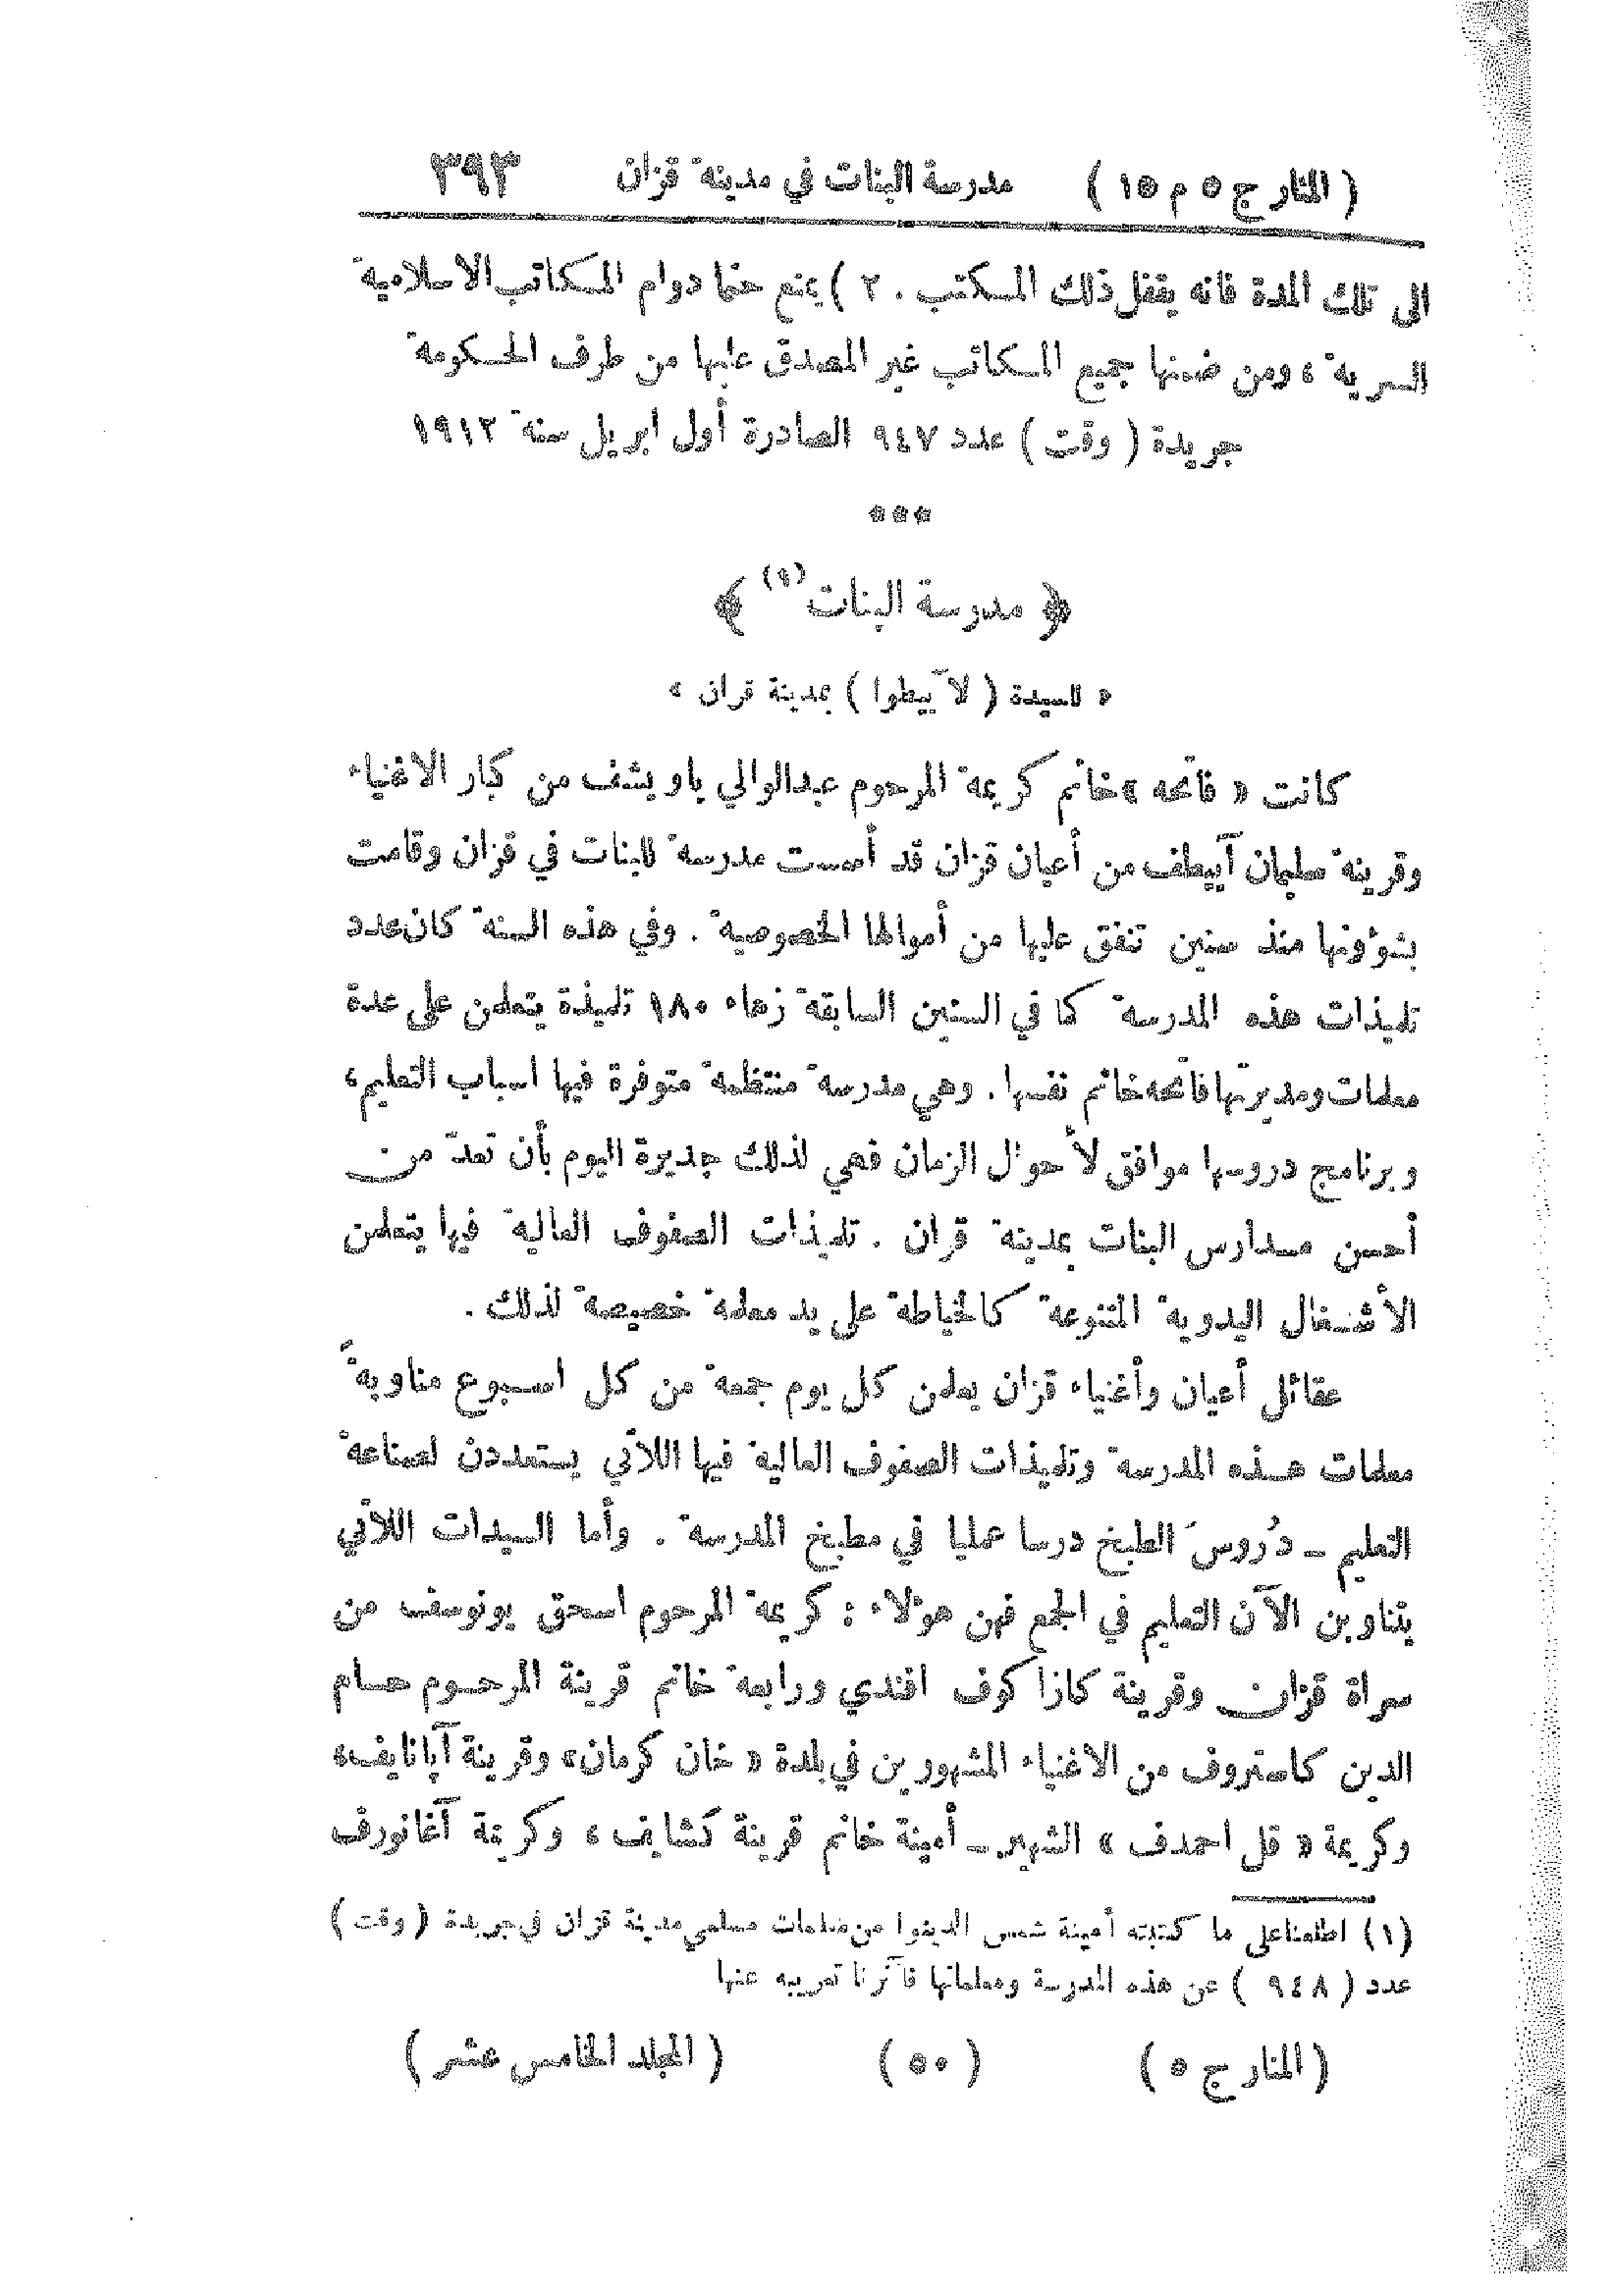 (المنار ج ٥ م ١٥) مدرسة البنات في مدينة قزان ٣٩٣
الى تلك المدة فانه يقفل ذلك المكتب . ٢ ) يمنع حتما دوام المكاتب الاسلامية
السرية ، ومن ضمنها جميع المكاتب غير المصدق عليها من طرف الحكومة
جريدة ( وقت ) عدد ٩٤٧ الصادرة أول ابريل سنة ١٩١٢
***
﴿ مدرسة البنات (١) ﴾
« للسيدة ( لآييطوا ) بمدينة قزان »
كانت « فاتحه » خانم كريمة المرحوم عبدالوالي ياويشف من كبار الاغنياء
وقرينة سليمان آييطف من أعيان قزان قد أسست مدرسة للبنات في قزان وقامت
بشؤونها منذ سنين تنفق عليها من أموالها الخصوصية . وفي هذه السنة كان عدد
تلميذات هذه المدرسة كما في السنين السابقة زهاء ١٨٠ تلميذة يتعلمن على عدة
معلمات ومديرتها فاتحه خانم نفسها . وهي مدرسة منتظمة متوفرة فيها اسباب التعليم ،
وبرنامج دروسها موافق لأحوال الزمان فهي لذلك جديرة اليوم بأن تعدّ من
أحسن مدارس البنات بمدينة قزان . تلميذات الصفوف العالية فيها يتعلمن
الأشغال اليدوية المتنوعة كالخياطة على يد معلمة خصيصة لذلك .
عقائل أعيان وأغنياء قزان يعلمن كل يوم جمعة من كل اسبوع مناوبةً
معلمات هذه المدرسة وتلميذات الصفوف العالية فيها اللاتي يستعددن لصناعة
التعليم ــ دُروسَ الطبخ درسا عمليا في مطبخ المدرسة . وأما السيدات اللاتي
يتناوبن الآن التعليم في الجمع فهن هؤلاء : كريمة المرحوم اسحق يونوسف من
سراة قزان وقرينة كازاكوف افندي ورابعة خانم قرينة المرحوم حسام
الدين كاستروف من الاغنياء المشهورين في بلدة « خان كرمان » وقرينة آپانايف ،
وكريمة « قل احمدف » الشهير ــ أمينة خانم قرينة كشايف ، وكريمة آغانورف
(١) اطلعنا على ما كتبته أمينة شمس الدينوا من معلمات مسلمي مدينة قزان في جريدة ( وقت )
عدد ( ٩٤٨ ) عن هذه المدرسة ومعلماتها فآثرنا تعريبه عنها
( المنار ج ٥ ) ( ٥٠ ) ( المجلد الخامس عشر )